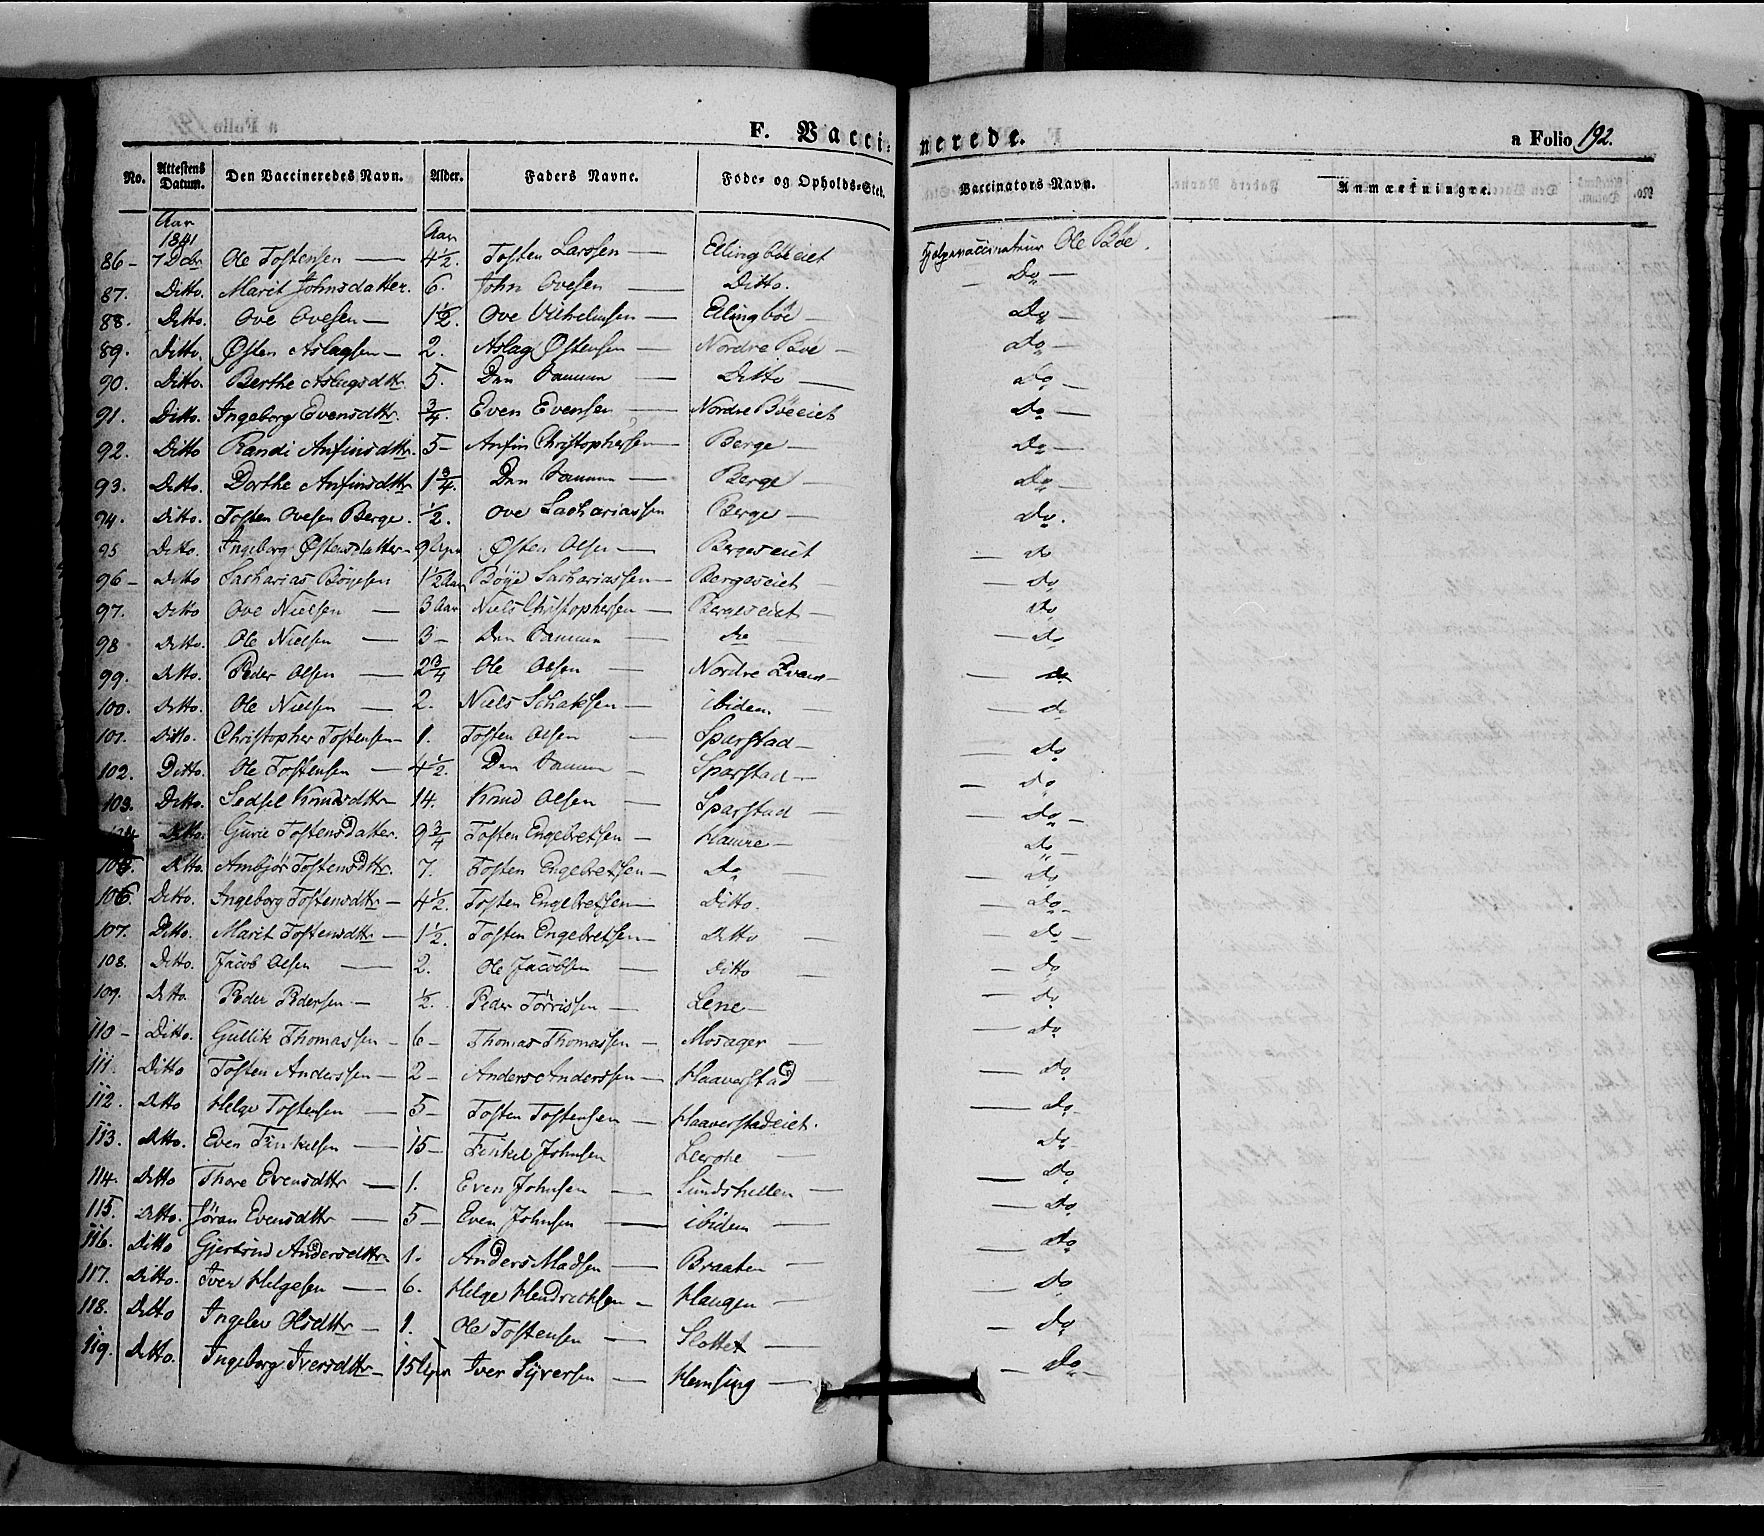 F. Vaccinerede.
a Folio 192.
No. Attestens Datum. Den Vaccineredes Navn. Alder. Faders Navne. Føde- og Opholds-Sted. Vaccinators Navn. Anmærkninger.
Aar 1841 Aar
86- 7 Dcbr Ole Tostensen — 4½. Tosten Larssen — Ellingbøeeiet Hjelpevaccinateur Ole Bøe.
87. Ditto. Marit Johnsdatter. 6. John Ovesen — Ditto. — Do —
88. Ditto. Ove Ovesen — 1½. Ove Vilhelmsen — Ellingbøe — Do —
89. Ditto. Østen Aslagsen — 2. Aslag Østensen — Nordre Bøe — Do —
90. Ditto. Berthe Aslagsdttr 5. Den Samme — Ditto — Do —
91. Ditto. Ingeborg Evensdttr. ¾. Even Evensen — Nordre Bøeeiet Do —
92. Ditto Randi Anfinsdttr. 5- Anfin Christophersen — Berge — Do —
93. Ditto. Dorthe Anfinsdttr 1¾. Den Samme — Berge — Do —
94. Ditto. Tosten Ovesen Berge. ½. Ove Sachariassen Berge — Do.
95 Ditto. Ingeborg Østensdatter — 9 Østen Olsen — Bergeseiet — do
96- Ditto Sacharias Bøyesen 1½ Aar Bøye Sachariassen — Bergeseiet — — do
97. Ditto Ove Nielsen — 3 Aar Niels Christophersen — Bergeseiet — do
98 Ditto. Ole Nielsen — 3- Den Samme — do — do
99. Ditto. Peder Olsen — 2¾ Ole Olsen — Nordre — do
100. Ditto. Ole Nielsen — 2. Niels Schaksen — ibidem — — do
101. Ditto. Christopher Tostensen — 1. Tosten Olsen — Sparstad — — do
102. Ditto. Ole Tostensen — 4½. Den Samme — Sparstad — — do
103. Ditto. Sedsel Knudsdttr — 14. Knud Olsen — Sparstad — — do —
104 Ditto. Gurie Tostensdatter. 9¾ Tosten Engebretsen — Haure — do —
105. Ditto. Ambjør Tostensdttr. 7. Tosten Engebretsen — Do — — do
106 Ditto. Ingeborg Tostensdttr — 4½. Tosten Engebretsen — Ditto. — do —
107. Ditto. Marit Tostensdttr — 1½. Tosten Engebretsen — Ditto — — do —
108. Ditto. Jacob Olsen — 2. Ole Jacobsen — Ditto — — do
109. Ditto. Peder Pedersen — ½. Peder Torrissen — Lene — — do
110- Ditto. Gullik Thomassen — 6- Thomas Thomassen — Mosager — — do
111. Ditto Tosten Anderssen — 2- Anders Anderssen — Haaverstad — — do
112. Ditto Helge Tostensen — 5- Tosten Tostensen — Haaverstadeiet. — do
113. Ditto. Even Finkelsen — 15- Finkel Johnsen Leerhe — — do
114. Ditto Thore Evensdttr — 1. Even Johnsen — Sundshellen — — do
115. Ditto. Jøran Evensdttr — 5- Even Johnsen — ibidem — — do
116. Ditto Gjertrud Andersdttr 1. Anders Madsen — Braaten — — do
117. Ditto. Iver Helgesen — 6. Helge Hendrichsen — Haugen — — do
118. Ditto Ingelev Olsdttr — 1. Ole Tostensen — Slottet — — do
119. Ditto. Ingeborg Iversdttr — 15 Iver Syversen — Hemsing — — do —